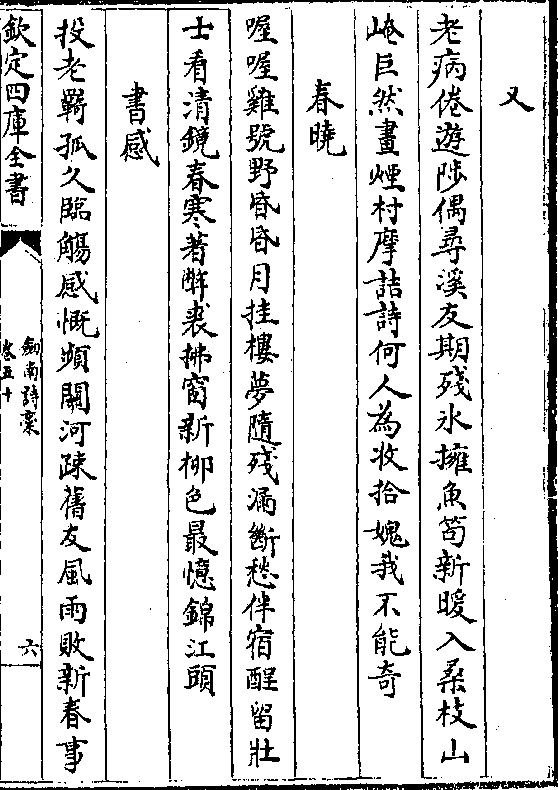 又
老病倦遊陟偶尋溪友期殘氷擁魚笱新暖入桑枝山
崦巨然畫煙村摩詰詩何人為收拾媿我不能竒
春曉
喔喔雞號野昏昏月挂樓夢隨殘漏斷愁伴宿酲留壯
士看清鏡春寒著弊裘拂窗新柳色最憶錦江頭
書感
投老羇孤久臨觴感慨頻關河疎舊友風雨敗新春事
欽定四庫全書
劒南詩稾
卷五十
六